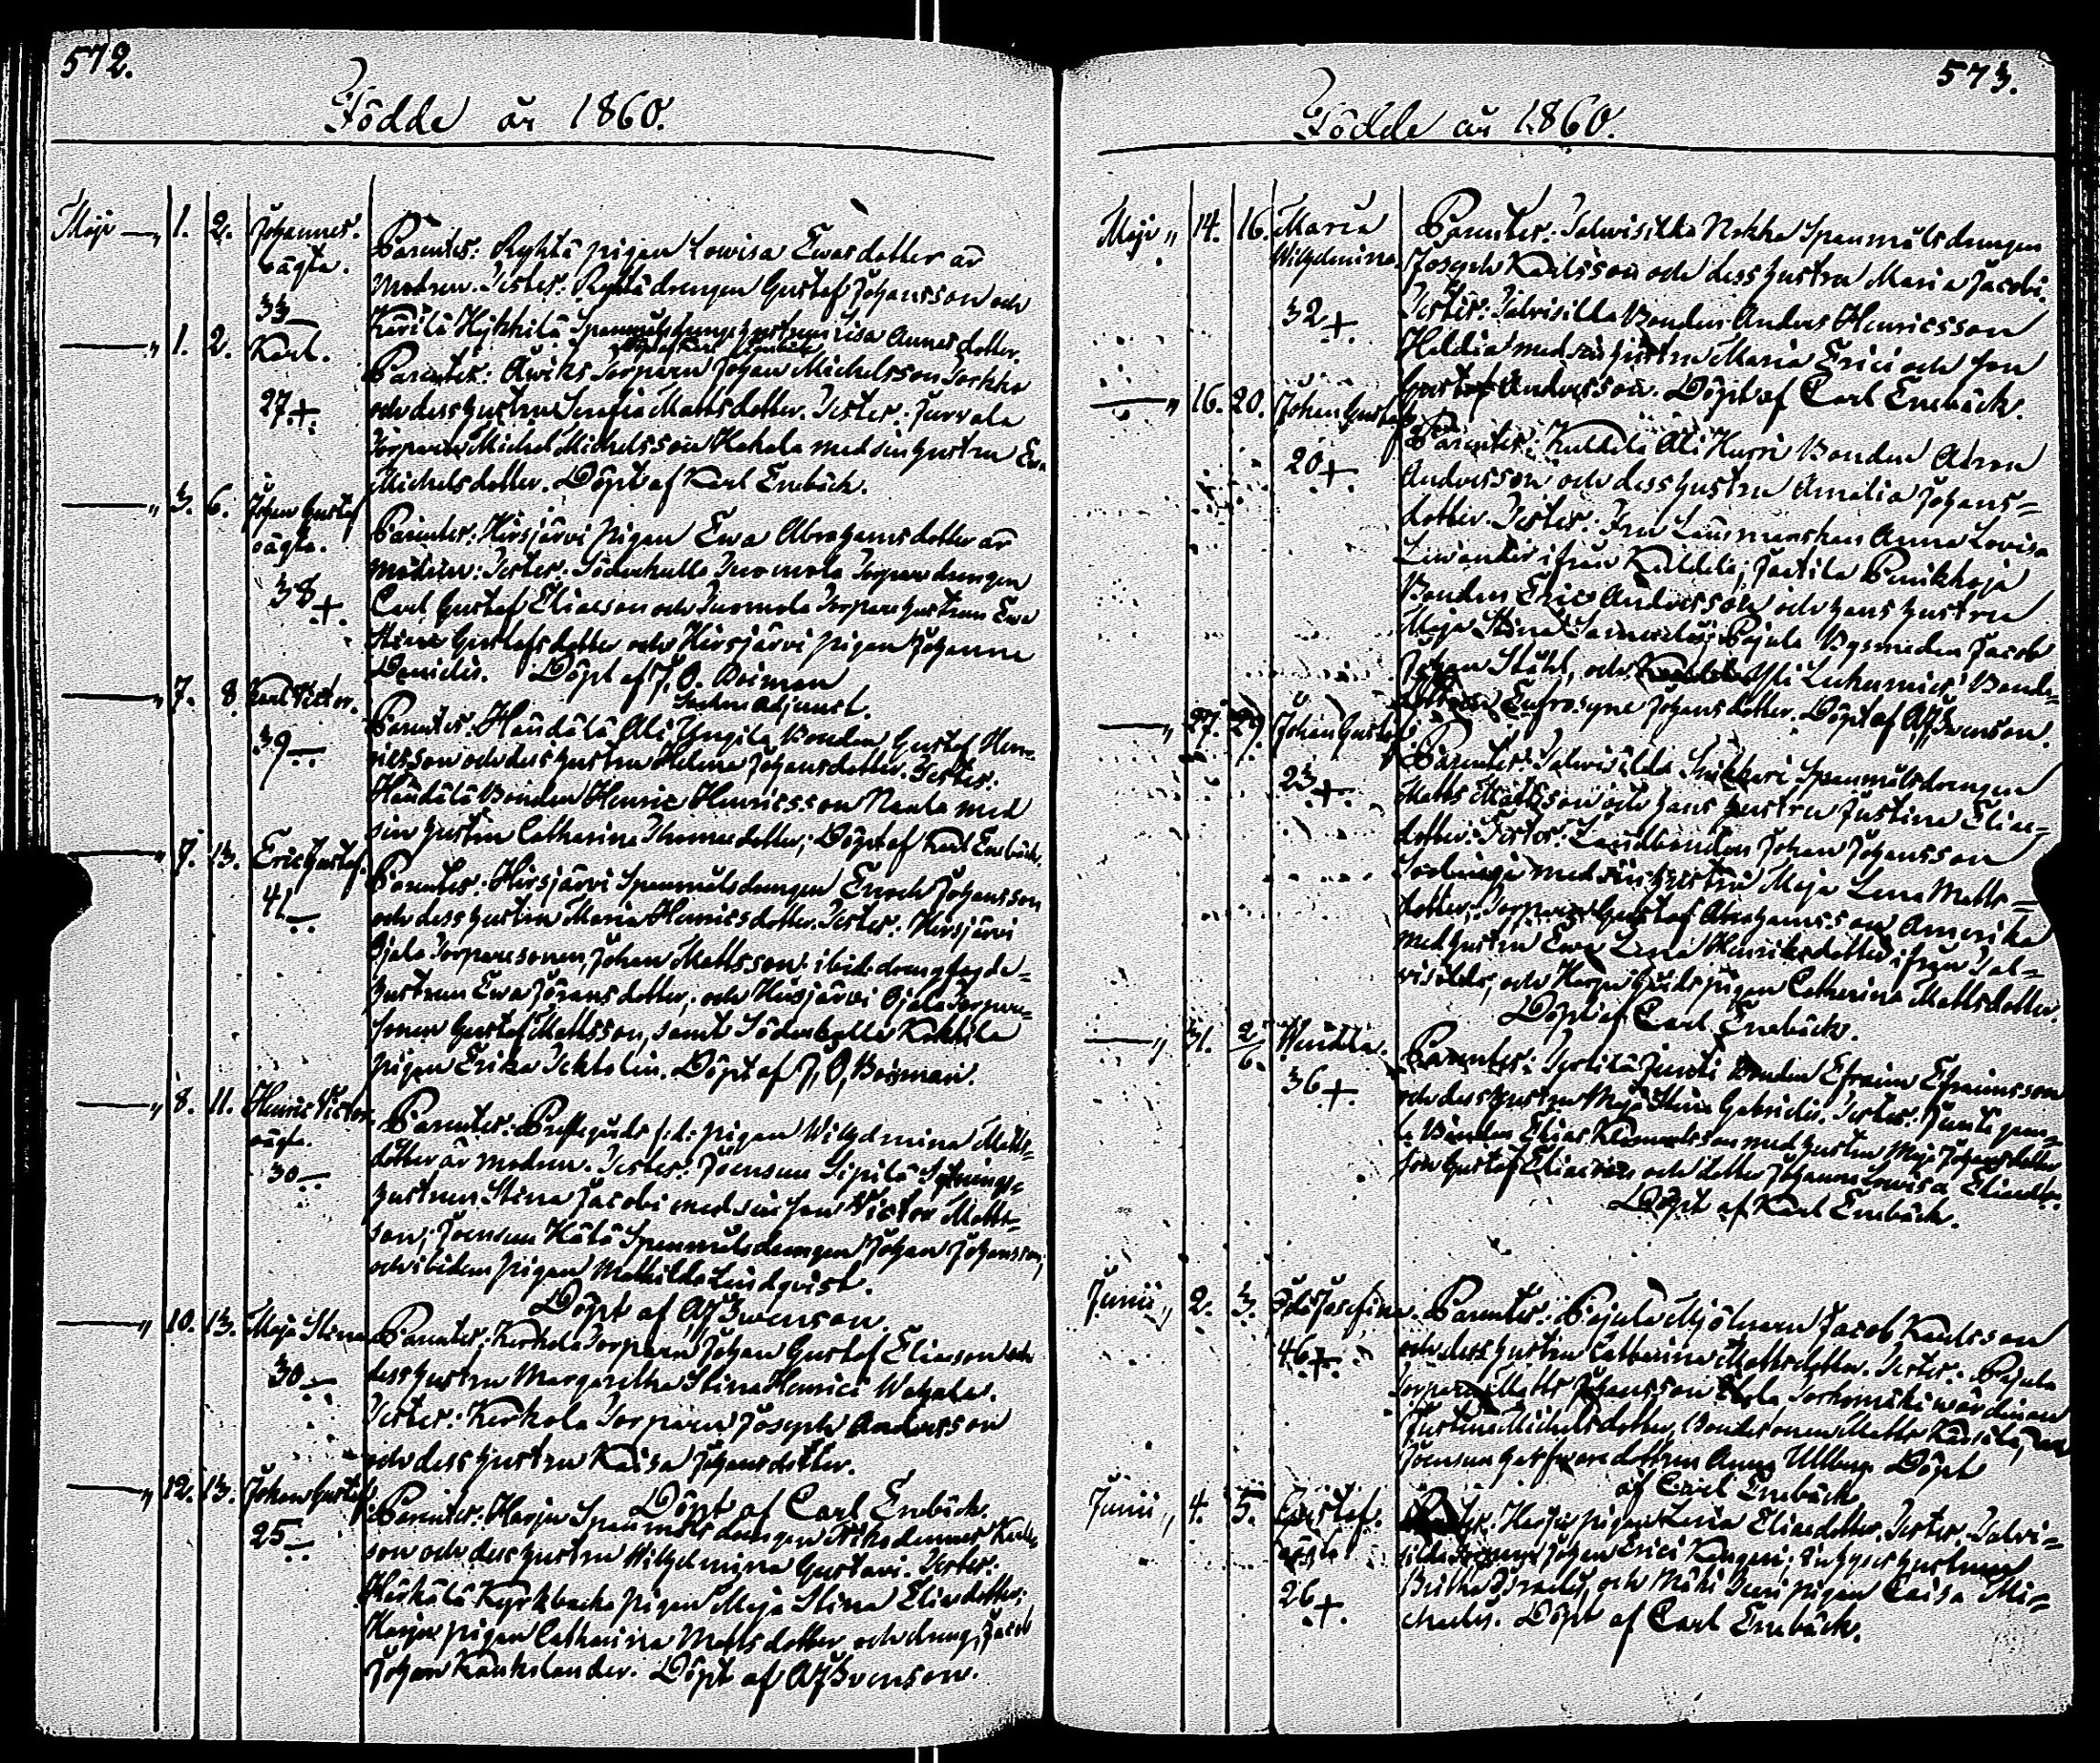 572.
Födde år 1860.
Maji — „ 1. 2. Johannes.
oägta.
33 —
Parentes: Ryhtä pigan Lowisa Ewasdotter är
modren. Testes: Ryhtä drengen Gustaf Johansson och
Kärilä Hykkilä Spanmålsdrengs hustrun Lisa Annasdotter.
— „ 1. 2. Karl.
27 +.
Parentes: Torparen Johan Michelsson Torkko
och dess hustru Serafia Mattsdotter. Testes: Jurvala
Torparen Michel Michelsson Hakala med sin hustru Ewa
Michelsdotter. Döpt af Karl Enebäck.
— „ 3. 6. Johan Gustaf
oägta.
38 +.
Parentes: Hirsjärvi pigan Ewa Abrahamsdotter är
modren. Testes: Söderkulla Tuomola Torpare drengen
Carl Gustaf Eliasson och Tuomola Torpare hustrun Ewa
Stina Gustafsdotter och Hirsjärvi pigan Johanna
Davidis. Döpt af J. O. Boisman
Sockne Adjunct.
— „ 7. 8. Karl Victor.
39 —
Parentes: Häntälä Ali Yngila Bonden Gustaf Hen-
ricsson och dess hustru Helena Johansdotter. Testes:
Häntälä Bonden Henric Henricsson Naala med
sin hustru Catharina Thomasdotter; Döpt af Karl Enebäck.
— „ 7. 13. Eric Gustaf.
41 —
Parentes: Hirsjärvi Spanmålsdrengen Enoch Johansson
och dess hustru Maria Henricsdotter. Testes: Hirsjärvi
Ojala Torparesonen Johan Mattsson. ibid.
hustrun Ewa Göransdotter, och Hirsjärvi Ojala Torpare-
sonen Gustaf Mattsson, samt Söderkulla
pigan Erika. Döpt af J. O. Boisman.
— „ 8. 11. Henric Victor.
oägta.
30 —
Parentes: Pigan Wilhelmina Matts-
dotter är modren. Testes: Joensuu Sipilä
hustrun Stina Jacobi med sin son Victor Matts-
son; Joensuu Spanmålsdrengen Johan Johansson,
och ibidem pigan Mathilda Lindqvist.
Döpt af A J Svenson.
— „ 10. 13. Maja Stina
30 —
Parentes: Kerkola Torparen Johan Gustaf Eliasson och
dess hustru Margaretha Stina Henrici.
Testes: Kerkola Torparen Joseph Andersson
och dess hustru Kaisa Johansdotter.
Döpt af Carl Enebäck.
— „ 12. 13. Johan Gustaf
25 —
Parentes: Harju Spanmålsdrengen Nikodemus Karls-
son och dess hustru Wilhelmina Gustavi. Testes:
Härkälä Kyrkbacka pigan Maja Stina Eliedotter;
Harju pigan Catharina Mattsdotter och dreng. Jacob
Johan Kankelander. Döpt af A J Svenson.
573.
Födde år 1860.
Maji „ 14. 16. Maria
Wilhelmina
32 +
Parentes: Talvisilta Nokka Spanmålsdrengen
Joseph Karlsson och dess hustru Maria Jacobi.
Testes: Talvisilta Bonden Anders Henricsson
med sin hustru Maria Erici och son
Gustaf Andersson. Döpt af Carl Enebäck.
— „ 16. 20. Johan Gustaf
20 +.
Parentes: Kultela Ali Hurri Bonden Aron
Andersson och dess hustru Amalia Johans-
dotter. Testes: Fru Länsmanskan Anna Lovisa
ifrån Kultela;
Bonden Eric Andersson och hans hustru
Maja Stina; Pajula Bysmeden Jacob
Johan Ståhl, och
Eufrosyne Johansdotter. Döpt af A J Svenson.
— „ 27. 29. Johan Gustaf
23 +.
Parentes: Talvisilta Spanmålsdrengen
Matts Mattsson och hans hustru Justina Elias-
dotter. Testes: Landbonden Johan Johansson
med sin hustru Maja Lena Matts-
dotter; Gustaf Abrahamsson Amerika
med hustru Ewa Lena Henriksdotter ifrån Tal-
visilta, och Harju Gårds pigan Catharina Mattsdotter.
Döpt af Carl Enebäck.
— „ 31. 2/6. Wendla.
36 +.
Parentes: Terttilä Junti Bonden Efraim Efraimsson
och dess hustru Maja Stina Gabrielis. Testes:
Bonden Elias med hustru Maja Johansdotter
son Gustaf Eliasson och dotter Johanna Lowisa Eliedotter.
Döpt af Karl Enebäck.
Junii „ 2. 3. Ida Josefina.
46 +.
Parentes: Pajula Mjölnaren Jacob Karlsson
och dess hustru Catharina Mattsdotter. Testes: Pajula
Matts Johansson
Justina Michelsdotter, Bondesonen Matts
Joensuu Anna Ullberg. Döpt
af Carl Enebäck.
Junii „ 4. 5. Gustaf.
oägta
26 +.
Harju pigan Lena Eliedotter. Testes: Talvi-
silta Johan Erici;
Britha Israelis, och Mäki pigan Caisa Mi-
chaelis. Döpt af Carl Enebäck.